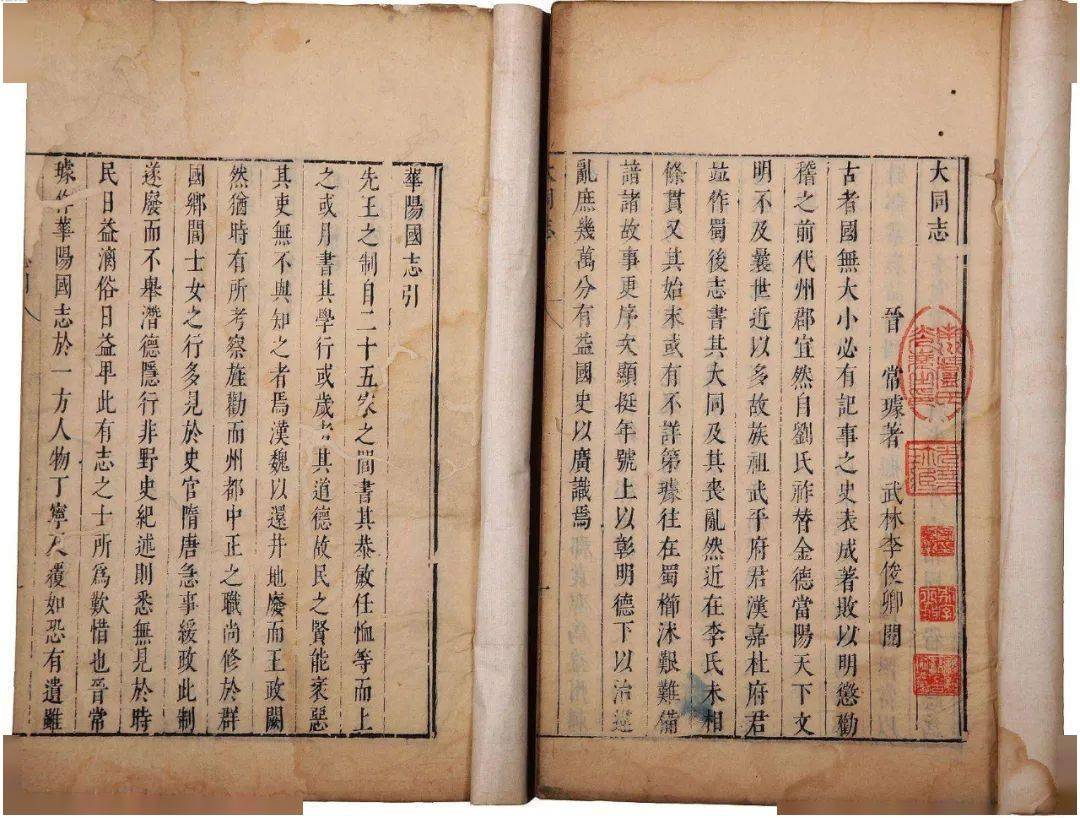 大同志
晉 常璩著 武林李俊卿閱
古者國無大小必有記事之史表成著敗以明懲勸
稽之前代州郡宜然自劉氏祚替金德當陽天下文
明不及曩世近以多故族祖武平府君漢嘉杜府君
竝作蜀後志書其大同及其喪亂然逮在李氏未相
條貫又其始末或有不詳第璩往在蜀櫛沐艱難備
諳諸故事更序次顯挺年號上以彰明德下以治違
亂庶幾萬分有益國史以廣識焉
華陽國志引
先王之制自二十五家之閭書其恭敏任恤等而上
之或月書其學行或歲考其道德故民之賢能衺惡
其吏無不與知之者焉漢魏以還井地廢而王政闕
然猶時有所考察旌勸而州都中正之職尚修於群
國鄉閭士女之行多見於史官隋唐急事緩政此制
遂廢而不舉潛德隱行非野史紀述則悉無見於時
民日益漓俗日益卑此有志之士所爲歎惜也晉常
璩作華陽國志於一方人物丁寧反覆如恐有遺雖